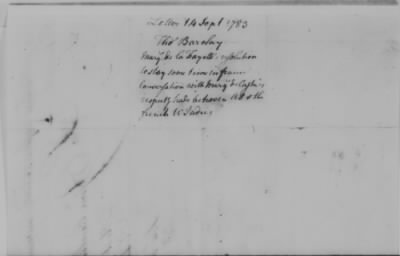 Letter 14 Sept 1783
Tho Barclay
Marqs de la Fayette's resolution
to stay some time in france
Conversation with Marqs de
respectg trade between US & the
french W Indies